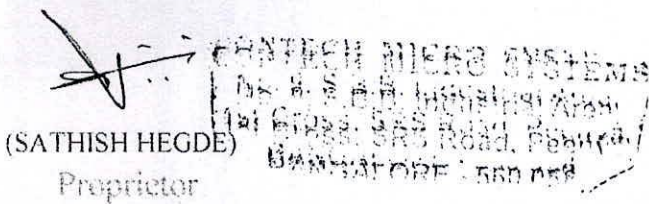 CONTECH MICRO SYSTEMS
Industrial Area,
1st Cross, SRS Road, Peenya,
BANGALORE - 560 058
(SATHISH HEGDE)
Proprietor